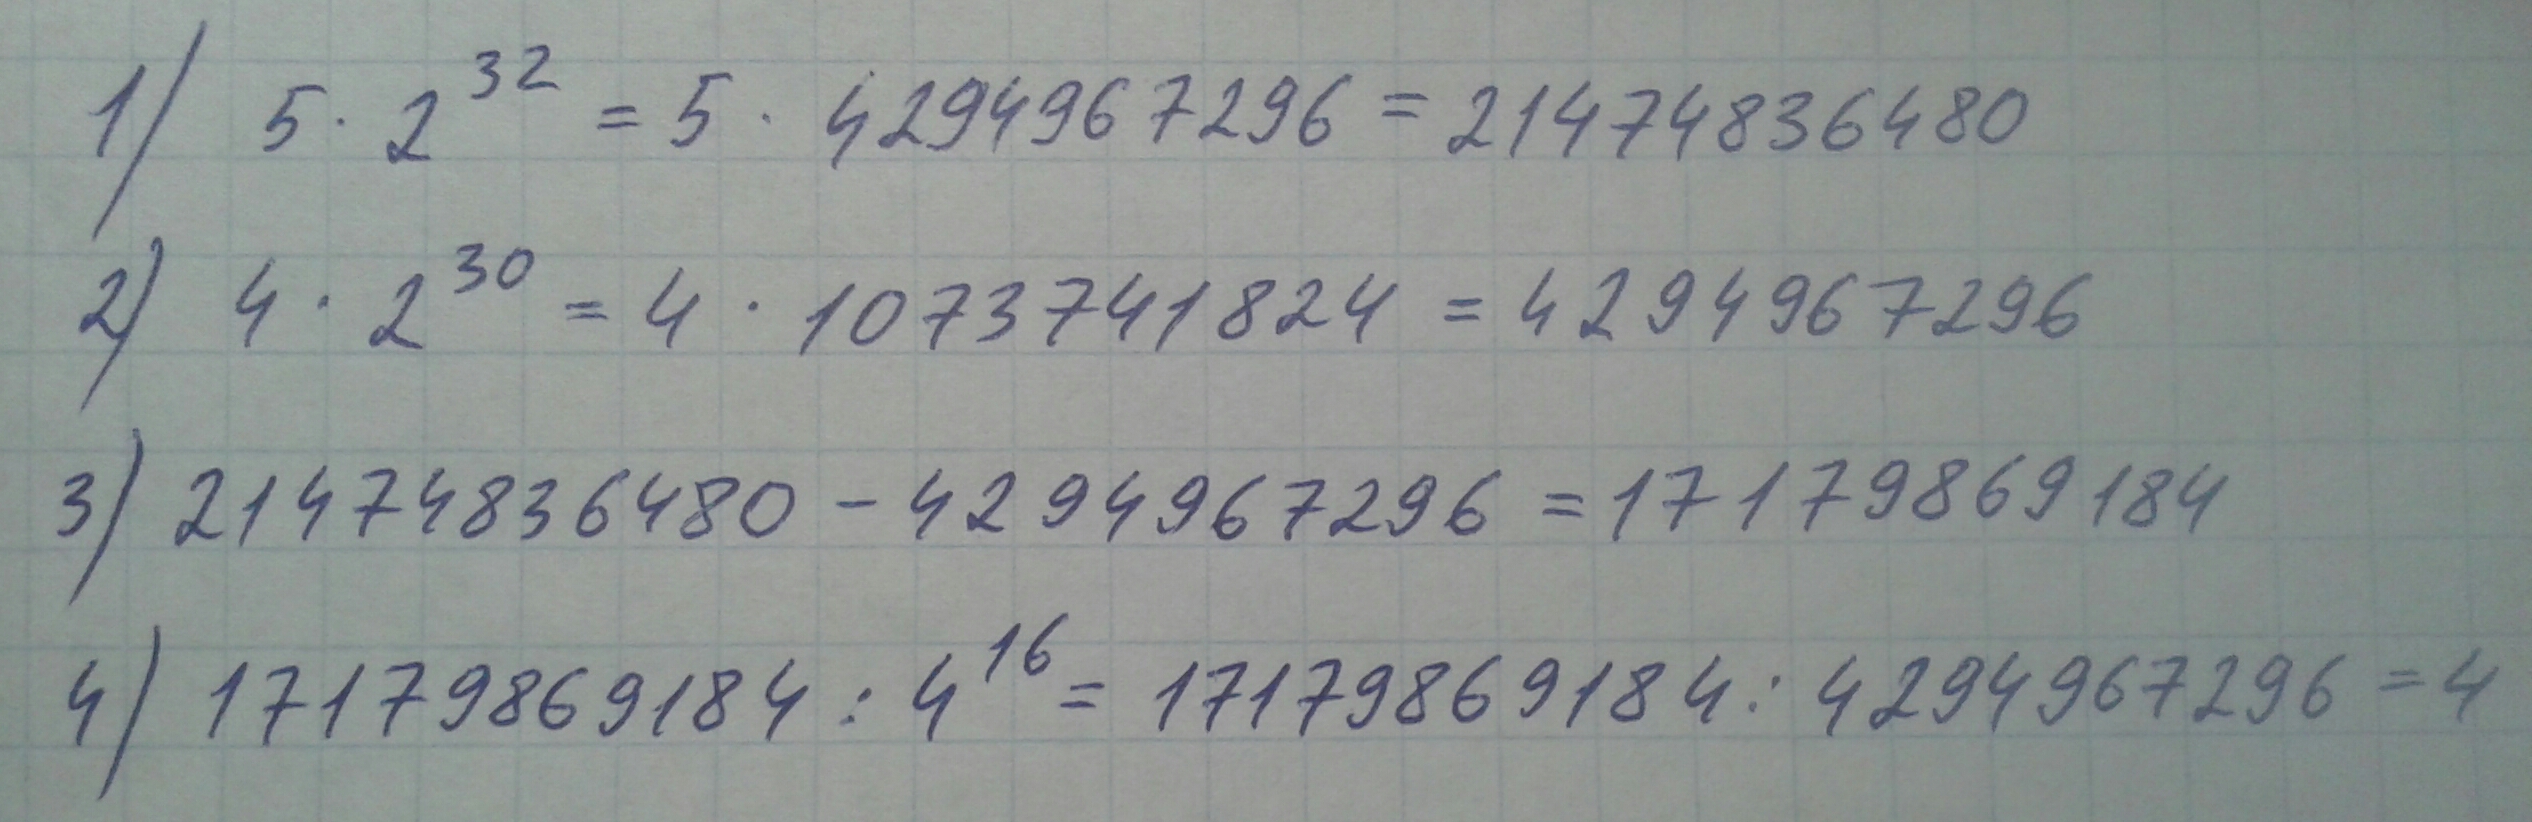 1) 5 · 2^32 = 5 · 4294967296 = 21474836480
2) 4 · 2^30 = 4 · 1073741824 = 4294967296
3) 21474836480 - 4294967296 = 17179869184
4) 17179869184 : 4^16 = 17179869184 : 4294967296 = 4